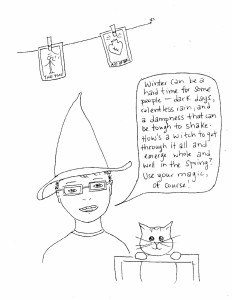 Winter can be a
hard time for some
people — dark days,
relentless rain, and
a dampness that can
be tough to shake.
How's a witch to get
through it all and
emerge whole and
well in the Spring?
Use your magic,
of course!